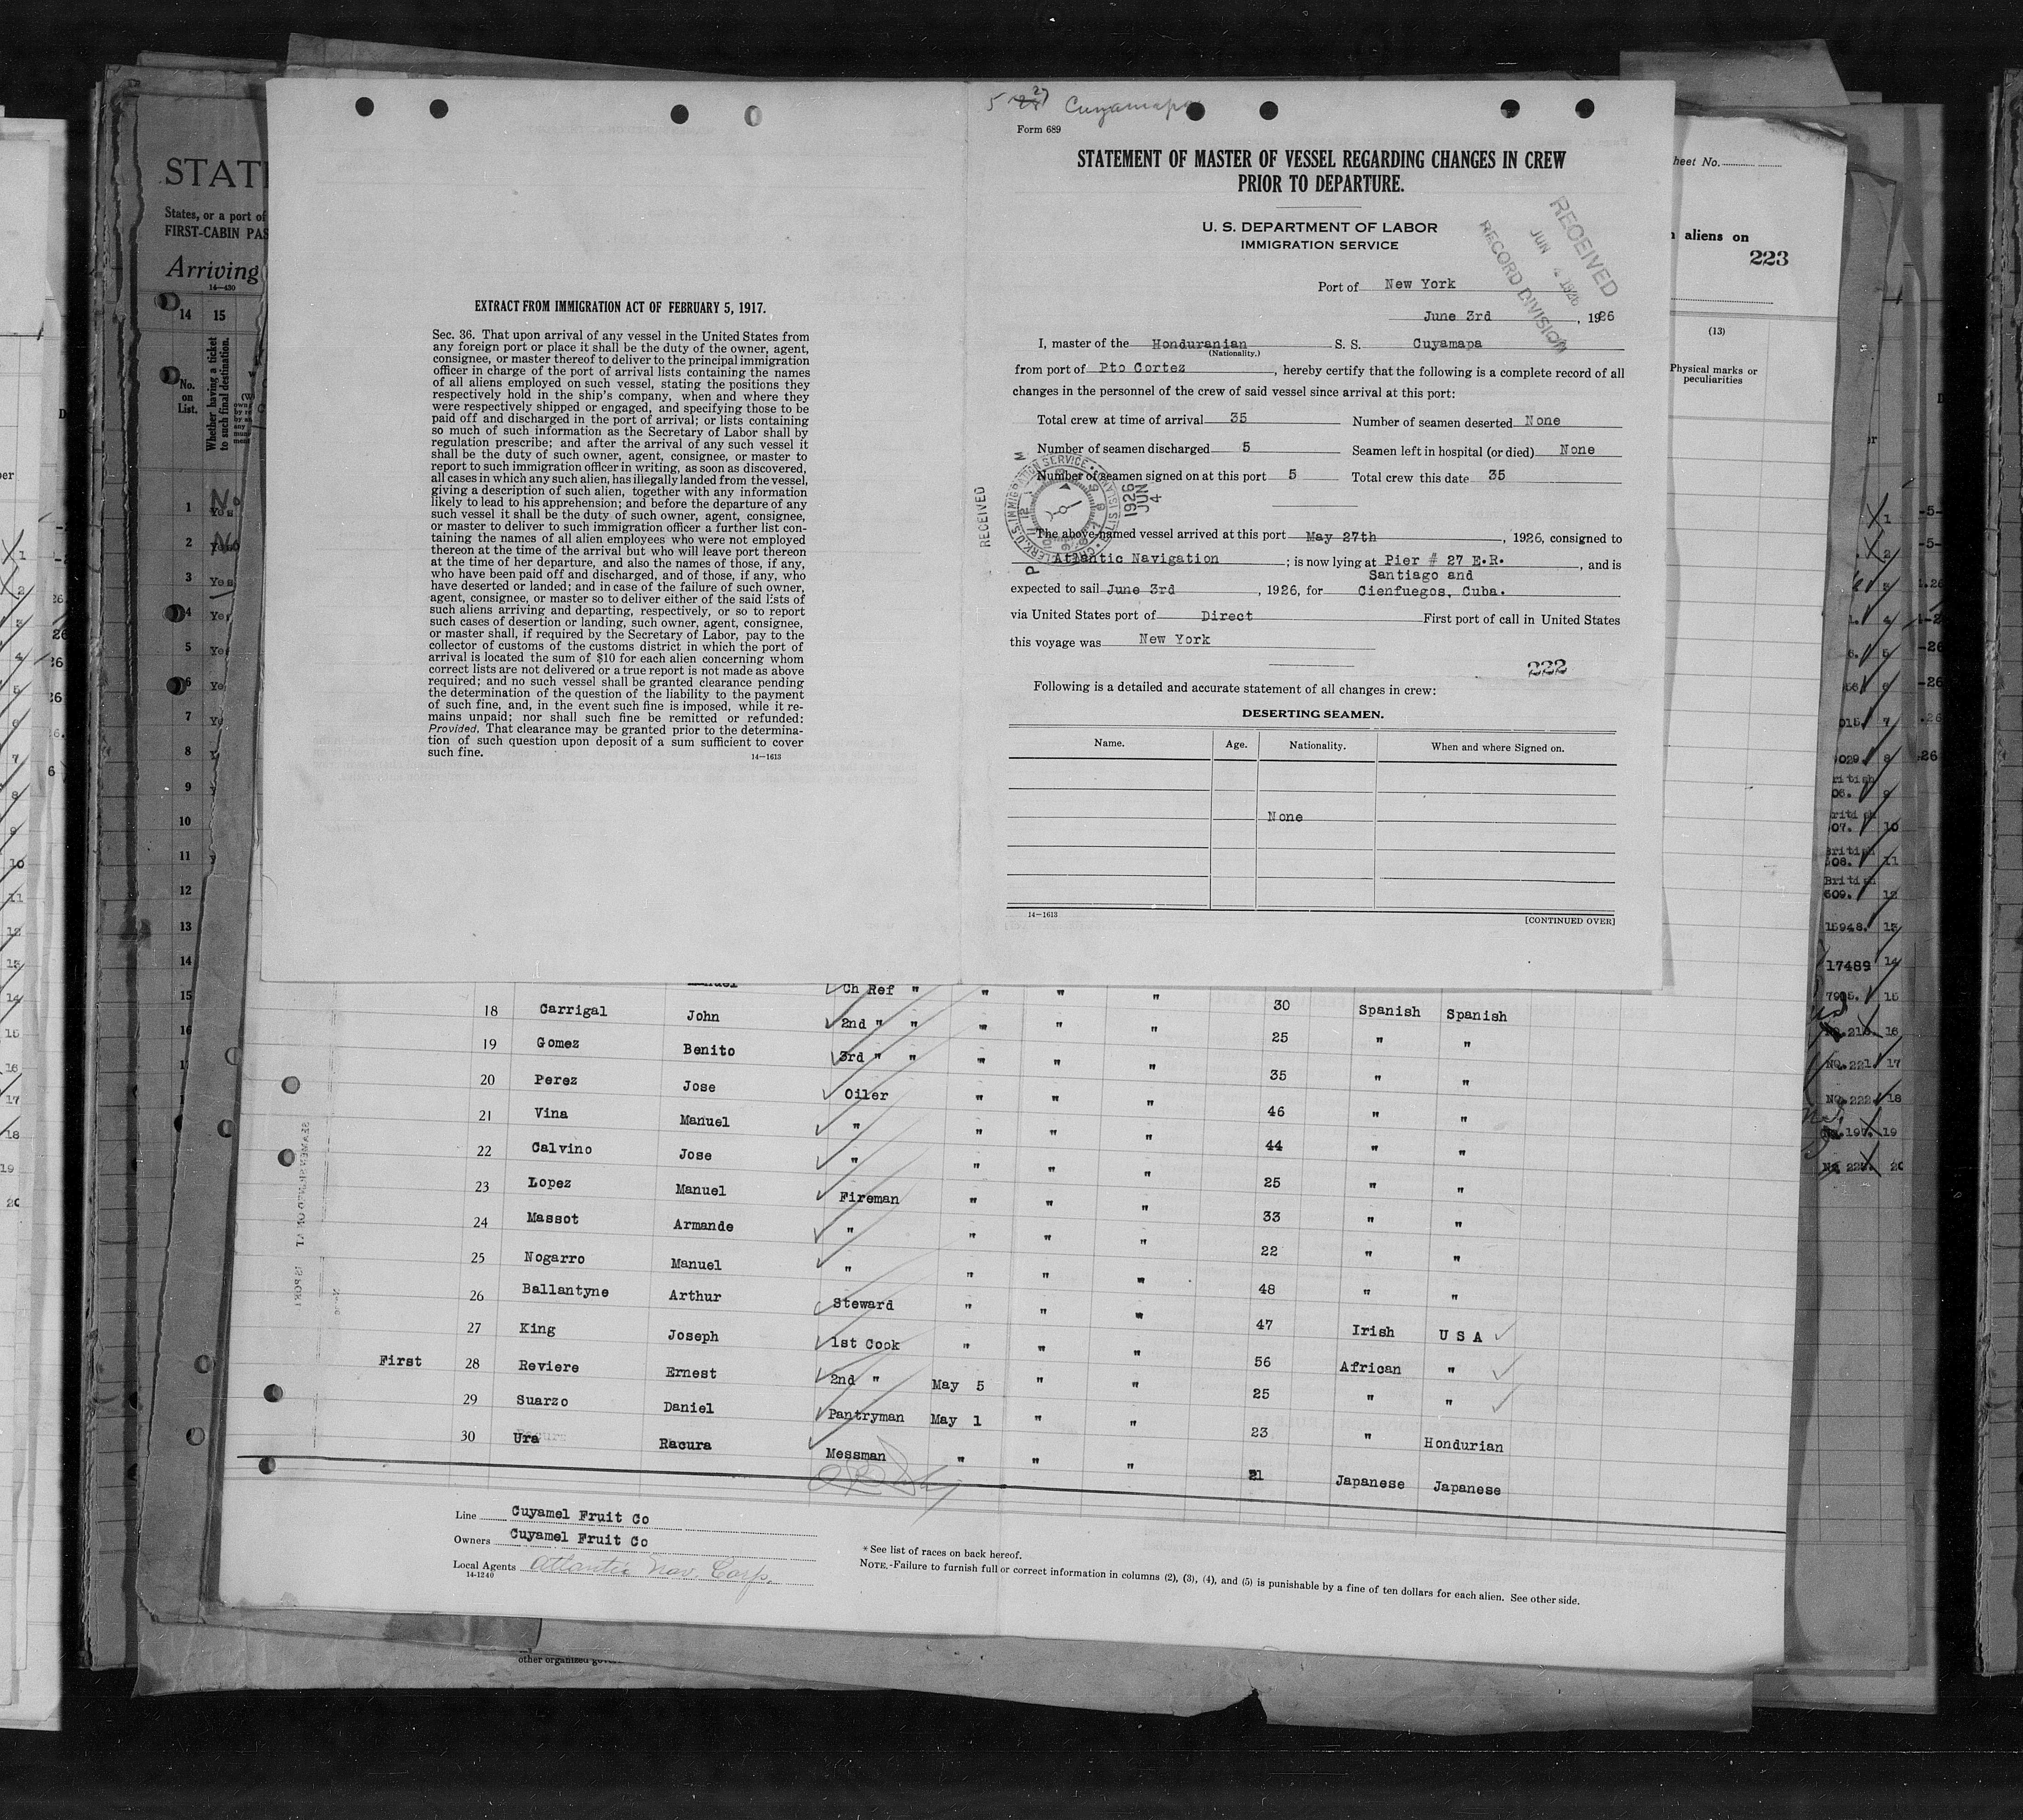 5 27 Cuyamapa
Form 689
STATEMENT OF MASTER OF VESSEL REGARDING CHANGES IN CREW
PRIOR TO DEPARTURE.
U. S. DEPARTMENT OF LABOR
IMMIGRATION SERVICE
RECEIVED
JUN 4 1926
RECORD DIVISION
Port of New York
June 3rd, 1926
I, master of the Honduranian S. S. Cuyamapa
(Nationality.)
from port of Pto Cortez, hereby certify that the following is a complete record of all
changes in the personnel of the crew of said vessel since arrival at this port:
Total crew at time of arrival 35 Number of seamen deserted None
Number of seamen discharged 5 Seamen left in hospital (or died) None
Number of seamen signed on at this port 5 Total crew this date 35
RECEIVED
1926 JUN 4
The above-named vessel arrived at this port May 27th, 1926, consigned to
Atlantic Navigation; is now lying at Pier # 27 E.R., and is
Santiago and
expected to sail June 3rd, 1926, for Cienfuegos, Cuba.
via United States port of Direct First port of call in United States
this voyage was New York
222
Following is a detailed and accurate statement of all changes in crew:
DESERTING SEAMEN.
Name. Age. Nationality. When and where Signed on.
None
14—1613
[CONTINUED OVER]
EXTRACT FROM IMMIGRATION ACT OF FEBRUARY 5, 1917.
Sec. 36. That upon arrival of any vessel in the United States from
any foreign port or place it shall be the duty of the owner, agent,
consignee, or master thereof to deliver to the principal immigration
officer in charge of the port of arrival lists containing the names
of all aliens employed on such vessel, stating the positions they
respectively hold in the ship's company, when and where they
were respectively shipped or engaged, and specifying those to be
paid off and discharged in the port of arrival; or lists containing
so much of such information as the Secretary of Labor shall by
regulation prescribe; and after the arrival of any such vessel it
shall be the duty of such owner, agent, consignee, or master to
report to such immigration officer in writing, as soon as discovered,
all cases in which any such alien, has illegally landed from the vessel,
giving a description of such alien, together with any information
likely to lead to his apprehension; and before the departure of any
such vessel it shall be the duty of such owner, agent, consignee,
or master to deliver to such immigration officer a further list con-
taining the names of all alien employees who were not employed
thereon at the time of the arrival but who will leave port thereon
at the time of her departure, and also the names of those, if any,
who have been paid off and discharged, and of those, if any, who
have deserted or landed; and in case of the failure of such owner,
agent, consignee, or master so to deliver either of the said lists of
such aliens arriving and departing, respectively, or so to report
such cases of desertion or landing, such owner, agent, consignee,
or master shall, if required by the Secretary of Labor, pay to the
collector of customs of the customs district in which the port of
arrival is located the sum of $10 for each alien concerning whom
correct lists are not delivered or a true report is not made as above
required; and no such vessel shall be granted clearance pending
the determination of the question of the liability to the payment
of such fine, and, in the event such fine is imposed, while it re-
mains unpaid; nor shall such fine be remitted or refunded:
Provided, That clearance may be granted prior to the determina-
tion of such question upon deposit of a sum sufficient to cover
such fine.
14—1613
States, or a port of
FIRST-CABIN PAS
Arriving
14—430
14 15
No. on List.
Whether having a ticket to such final destination.
heet No.
aliens on
223
(13)
Physical marks or
peculiarities
Ch Ref " " " "
18 Carrigal John 2nd " " " " " 30 Spanish Spanish
19 Gomez Benito 3rd " " " " " 25 " "
20 Perez Jose Oiler " " " 35 " "
21 Vina Manuel " " " " 46 " "
22 Calvino Jose " " " " 44 " "
23 Lopez Manuel Fireman " " " 25 " "
24 Massot Armande " " " " 33 " "
25 Nogarro Manuel " " " " 22 " "
26 Ballantyne Arthur Steward " " " 48 " "
27 King Joseph 1st Cook " " " 47 Irish U S A
First 28 Reviere Ernest 2nd " May 5 " " 56 African "
29 Suarzo Daniel Pantryman May 1 " " 25 " "
30 Ura Racura Messman " " " 23 " Hondurian
21 Japanese Japanese
Line Cuyamel Fruit Co
Owners Cuyamel Fruit Co
Local Agents Atlantic Nav. Corp.
14-1240
* See list of races on back hereof.
NOTE.-Failure to furnish full or correct information in columns (2), (3), (4), and (5) is punishable by a fine of ten dollars for each alien. See other side.